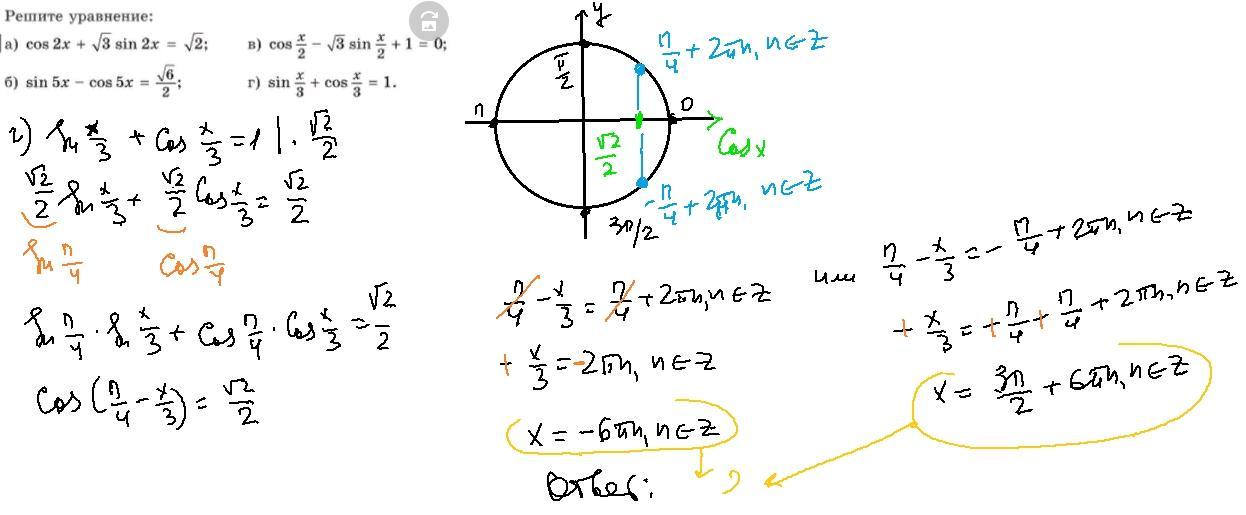 Решите уравнение:
а) cos 2x + √3 sin 2x = √2;
в) cos x/2 − √3 sin x/2 + 1 = 0;
б) sin 5x − cos 5x = √6/2;
г) sin x/3 + cos x/3 = 1.
г) sin x/3 + cos x/3 = 1 | · √2/2
√2/2 sin x/3 + √2/2 cos x/3 = √2/2
sin π/4 cos π/4
sin π/4 · sin x/3 + cos π/4 · cos x/3 = √2/2
cos(π/4 − x/3) = √2/2
y
π/2
π/4 + 2πn, n∈Z
π
0
√2/2
cos x
−π/4 + 2πn, n∈Z
3π/2
π/4 − x/3 = π/4 + 2πn, n∈Z
+ x/3 = −2πn, n∈Z
x = −6πn, n∈Z
Ответ: ;
или π/4 − x/3 = − π/4 + 2πn, n∈Z
+ x/3 = + π/4 + π/4 + 2πn, n∈Z
x = 3π/2 + 6πn, n∈Z